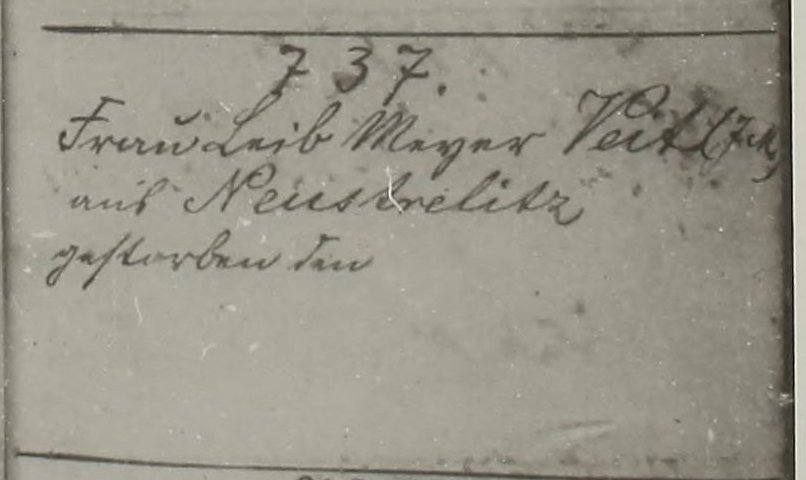 737.
Frau Leib Meyer Veit
aus Neustrelitz
gestorben den